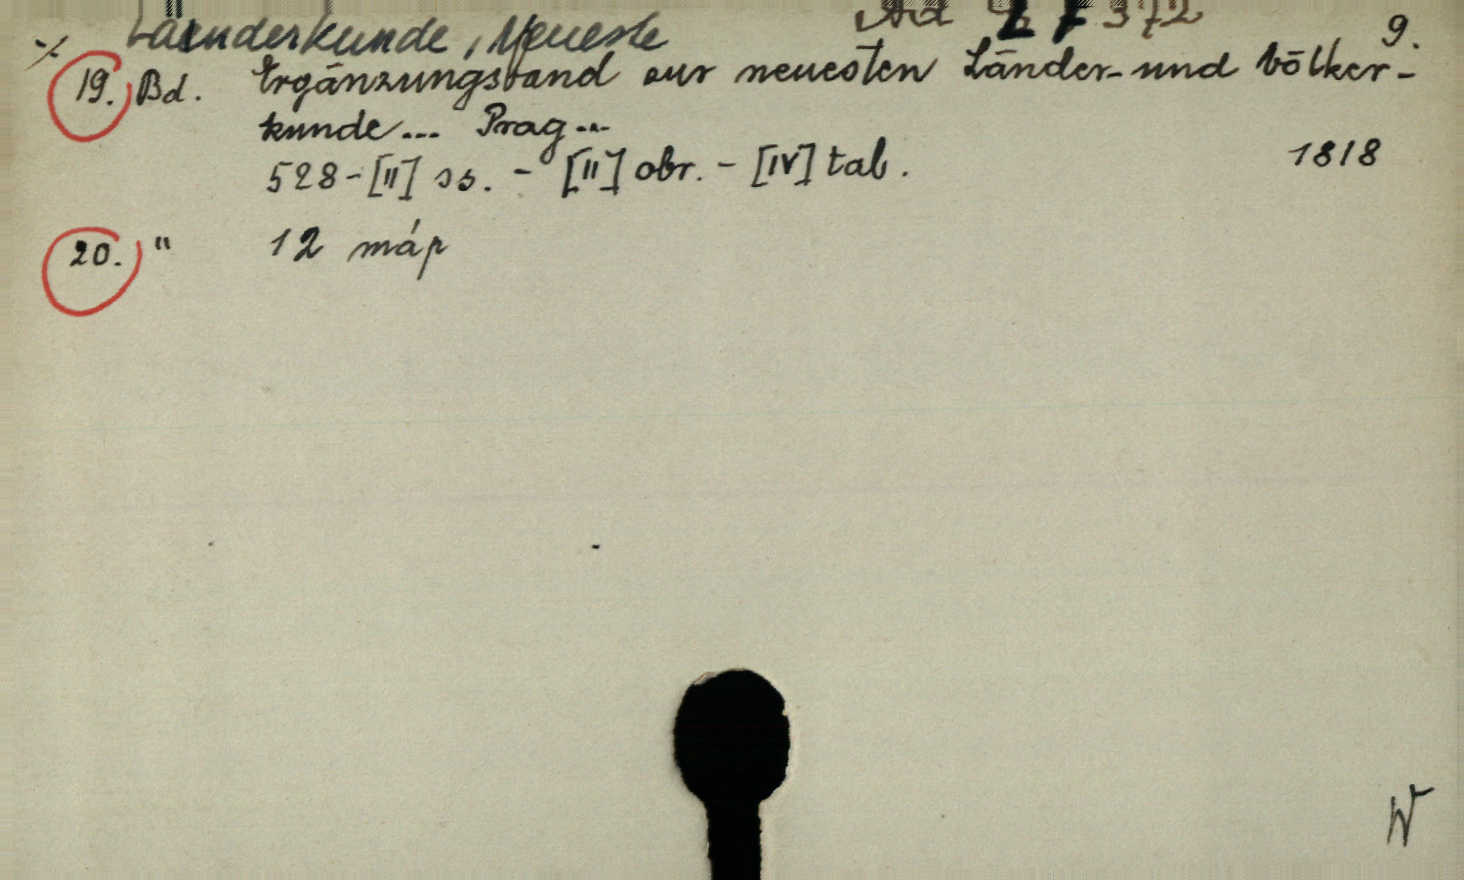 Laenderkunde, Neueste
9.
·/.
19. Bd. Ergänzungsband zur neuesten Länder- und Völker-
kunde... Prag...
528-[II] ss. - [II] obr. - [IV] tab. 1818
20. " 12 máp
W